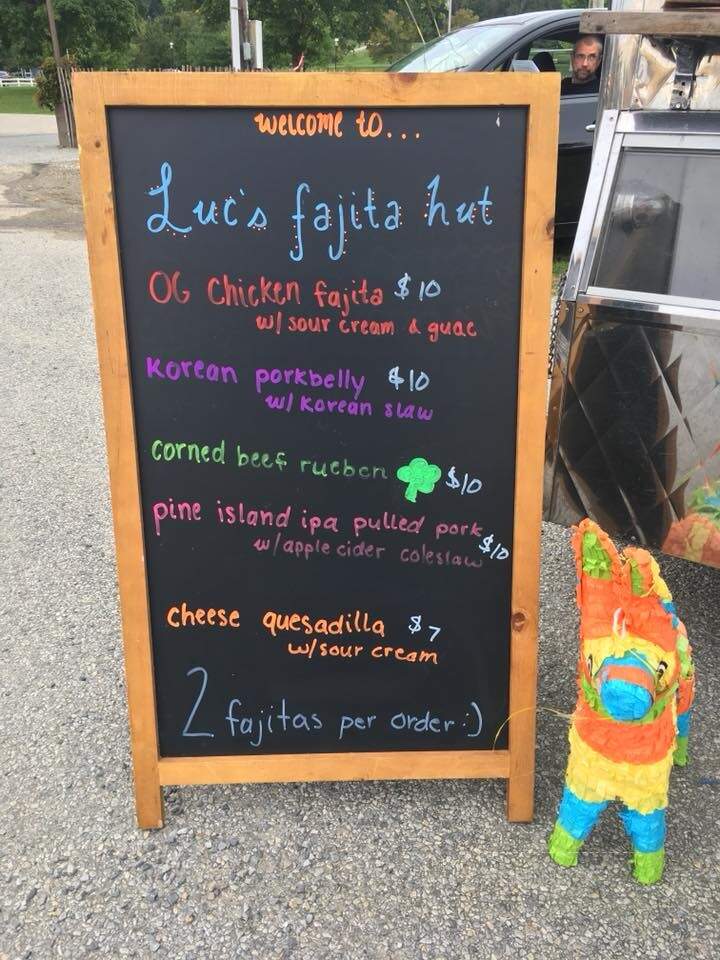 welcome to...
Luc's fajita hut
OG Chicken fajita $10
w/ sour cream & guac
Korean porkbelly $10
w/ Korean slaw
corned beef rueben $10
pine island ipa pulled pork $10
w/ apple cider coleslaw
cheese quesadilla $7
w/sour cream
2 fajitas per order :)